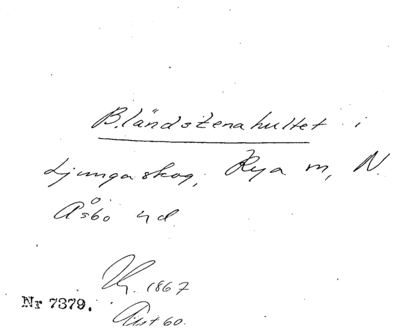 Bländstenahultet i
Ljungaskog, Rya m, N.
Åsbo hd
1867
Nr 7379.
Aust 60.